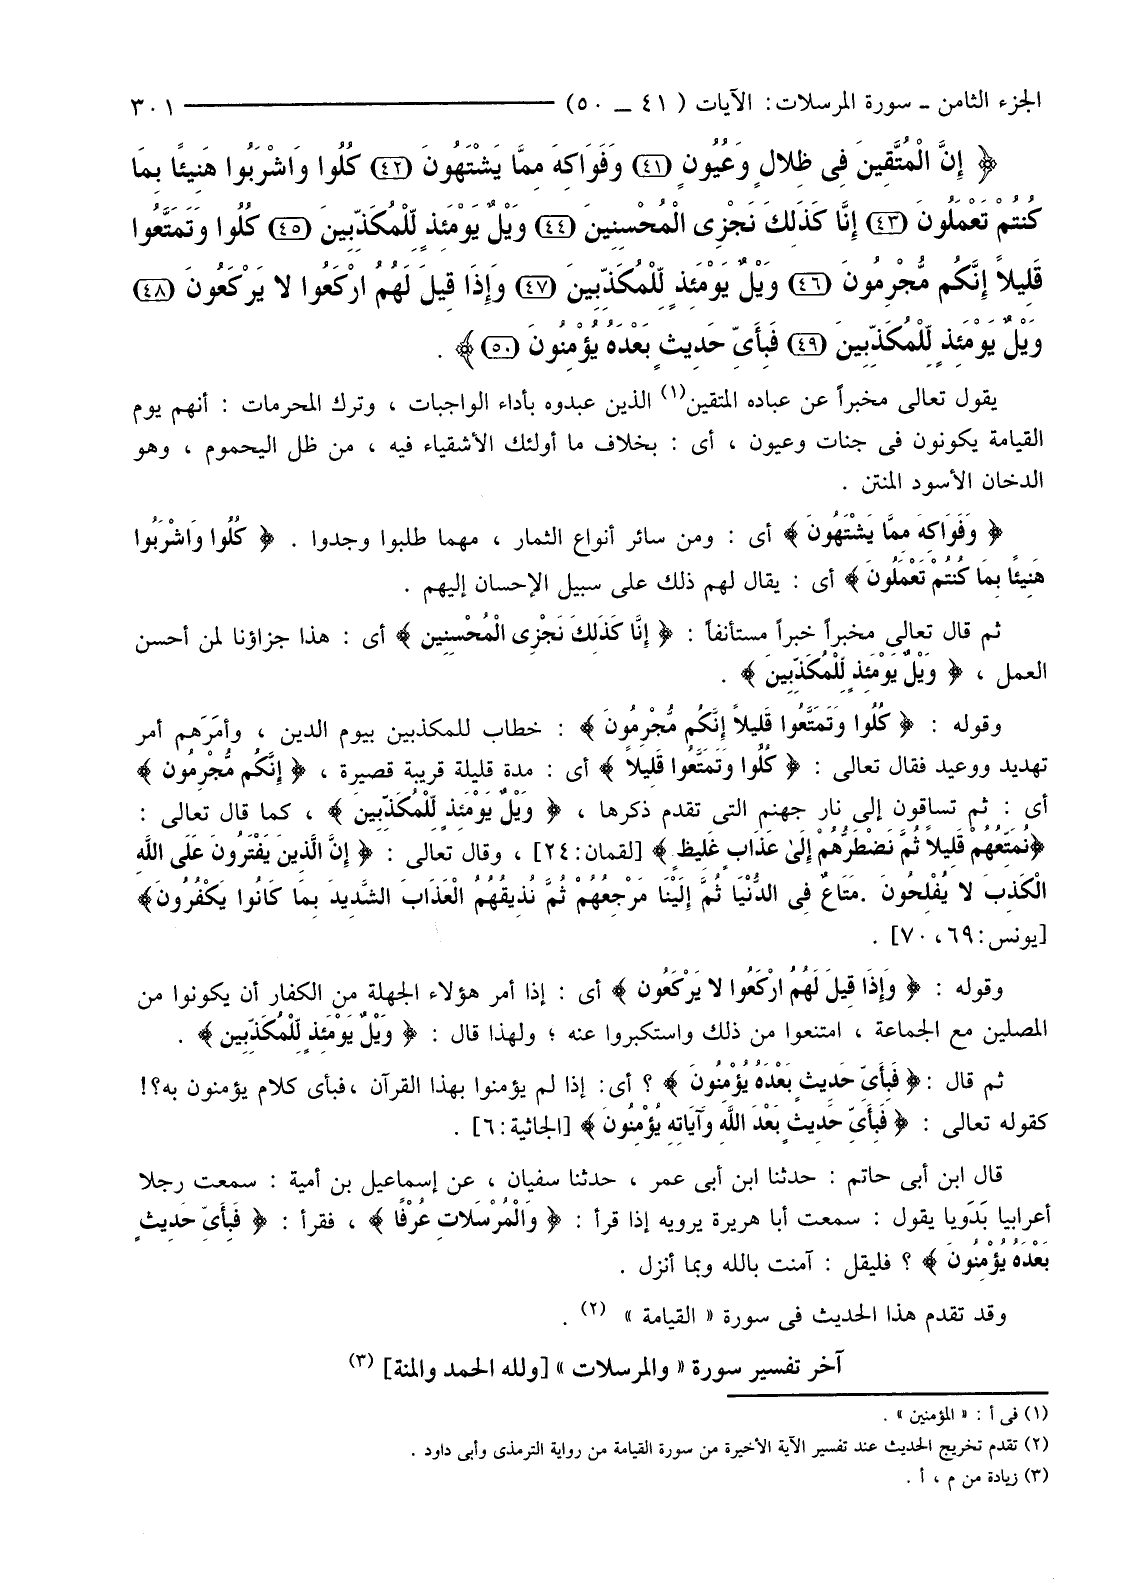 الجزء الثامن - سورة المرسلات: الآيات ( ٤١ ــ ٥٠) ٣٠١
﴿ إِنَّ الْمُتَّقِينَ فِى ظِلالٍ وَعُيُونٍ (٤١) وَفَوَاكِهَ مِمَّا يَشْتَهُونَ (٤٢) كُلُوا وَاشْرَبُوا هَنِيئًا بِمَا
كُنتُمْ تَعْمَلُونَ (٤٣) إِنَّا كَذَلِكَ نَجْزِى الْمُحْسِنِينَ (٤٤) وَيْلٌ يَوْمَئِذٍ لِّلْمُكَذِّبِينَ (٤٥) كُلُوا وَتَمَتَّعُوا
قَلِيلاً إِنَّكُم مُّجْرِمُونَ (٤٦) وَيْلٌ يَوْمَئِذٍ لِّلْمُكَذِّبِينَ (٤٧) وَإِذَا قِيلَ لَهُمُ ارْكَعُوا لا يَرْكَعُونَ (٤٨)
وَيْلٌ يَوْمَئِذٍ لِّلْمُكَذِّبِينَ (٤٩) فَبِأَىِّ حَدِيثٍ بَعْدَهُ يُؤْمِنُونَ (٥٠) ﴾ .
يقول تعالى مخبراً عن عباده المتقين(١) الذين عبدوه بأداء الواجبات ، وترك المحرمات : أنهم يوم
القيامة يكونون فى جنات وعيون ، أى : بخلاف ما أولئك الأشقياء فيه ، من ظل اليحموم ، وهو
الدخان الأسود المنتن .
﴿ وَفَوَاكِهَ مِمَّا يَشْتَهُونَ ﴾ أى : ومن سائر أنواع الثمار ، مهما طلبوا وجدوا . ﴿ كُلُوا وَاشْرَبُوا
هَنِيئًا بِمَا كُنتُمْ تَعْمَلُونَ ﴾ أى : يقال لهم ذلك على سبيل الإحسان إليهم .
ثم قال تعالى مخبراً خبراً مستأنفاً : ﴿ إِنَّا كَذَلِكَ نَجْزِى الْمُحْسِنِين ﴾ أى : هذا جزاؤنا لمن أحسن
العمل ، ﴿ وَيْلٌ يَوْمَئِذٍ لِّلْمُكَذِّبِينَ ﴾ .
وقوله : ﴿ كُلُوا وَتَمَتَّعُوا قَلِيلاً إِنَّكُم مُّجْرِمُونَ ﴾ : خطاب للمكذبين بيوم الدين ، وأمَرَهم أمر
تهديد ووعيد فقال تعالى : ﴿ كُلُوا وَتَمَتَّعُوا قَلِيلاً ﴾ أى : مدة قليلة قريبة قصيرة ، ﴿ إِنَّكُم مُّجْرِمُون ﴾
أى : ثم تساقون إلى نار جهنم التى تقدم ذكرها ، ﴿ وَيْلٌ يَوْمَئِذٍ لِّلْمُكَذِّبِينَ ﴾ ، كما قال تعالى :
﴿نُمَتِّعُهُمْ قَلِيلاً ثُمَّ نَضْطَرُّهُمْ إِلَىٰ عَذَابٍ غَلِيظٍ ﴾ [لقمان:٢٤] ، وقال تعالى : ﴿ إِنَّ الَّذِينَ يَفْتَرُونَ عَلَى اللَّهِ
الْكَذِبَ لا يُفْلِحُونَ .مَتَاعٌ فِى الدُّنْيَا ثُمَّ إِلَيْنَا مَرْجِعُهُمْ ثُمَّ نُذِيقُهُمُ الْعَذَابَ الشَّدِيدَ بِمَا كَانُوا يَكْفُرُونَ﴾
[يونس:٦٩، ٧٠] .
وقوله : ﴿ وَإِذَا قِيلَ لَهُمُ ارْكَعُوا لا يَرْكَعُون ﴾ أى : إذا أمر هؤلاء الجهلة من الكفار أن يكونوا من
المصلين مع الجماعة ، امتنعوا من ذلك واستكبروا عنه ؛ ولهذا قال : ﴿ وَيْلٌ يَوْمَئِذٍ لِّلْمُكَذِّبِين ﴾ .
ثم قال :﴿ فَبِأَىِّ حَدِيثٍ بَعْدَهُ يُؤْمِنُونَ ﴾ ؟ أى: إذا لم يؤمنوا بهذا القرآن ،فبأى كلام يؤمنون به؟!
كقوله تعالى : ﴿ فَبِأَىِّ حَدِيثٍ بَعْدَ اللَّهِ وَآيَاتِهِ يُؤْمِنُونَ ﴾ [الجاثية:٦] .
قال ابن أبى حاتم : حدثنا ابن أبى عمر ، حدثنا سفيان ، عن إسماعيل بن أمية : سمعت رجلا
أعرابيا بَدَويا يقول : سمعت أبا هريرة يرويه إذا قرأ : ﴿ وَالْمُرْسَلاتِ عُرْفًا ﴾ ، فقرأ : ﴿ فَبِأَىِّ حَدِيثٍ
بَعْدَهُ يُؤْمِنُونَ ﴾ ؟ فليقل : آمنت بالله وبما أنزل .
وقد تقدم هذا الحديث فى سورة « القيامة » (٢) .
آخر تفسير سورة « والمرسلات » [ولله الحمد والمنة] (٣)
(١) فى أ : « المؤمنين » .
(٢) تقدم تخريج الحديث عند تفسير الآية الأخيرة من سورة القيامة من رواية الترمذى وأبى داود .
(٣) زيادة من م ، أ .